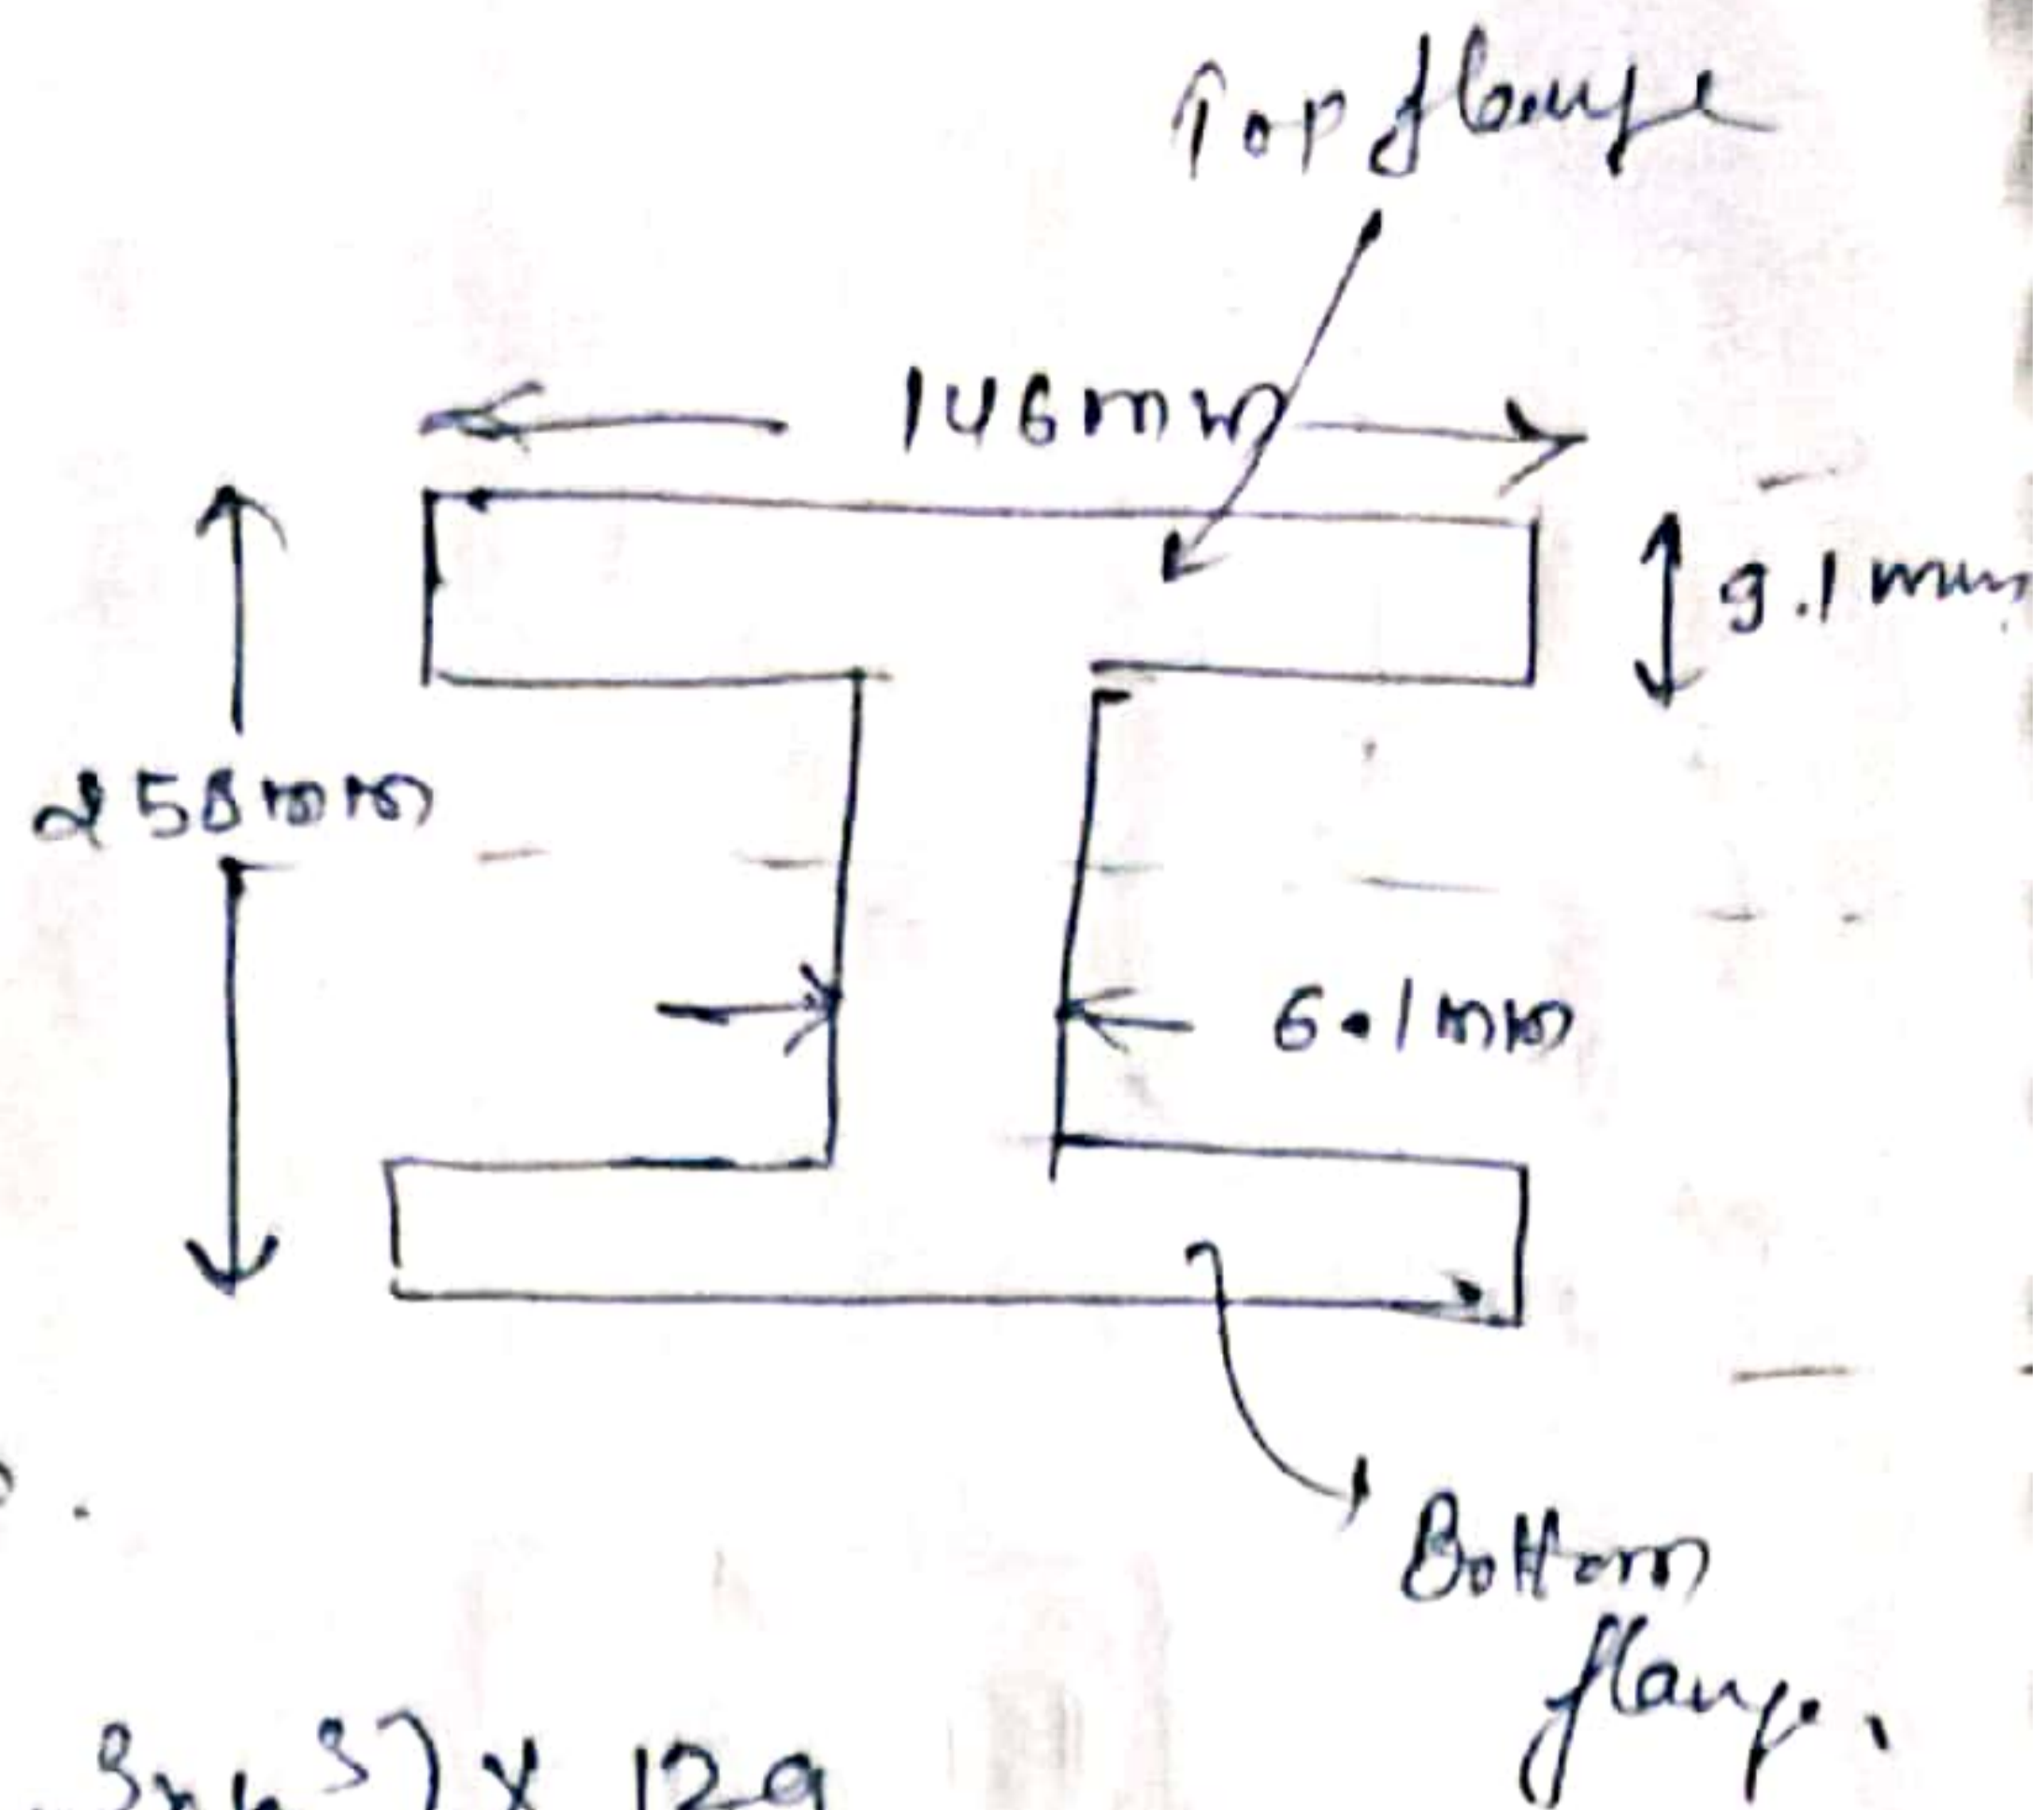 Top flange
146mm
9.1mm
258mm
6.1mm
Bottom
flange.
) x 129